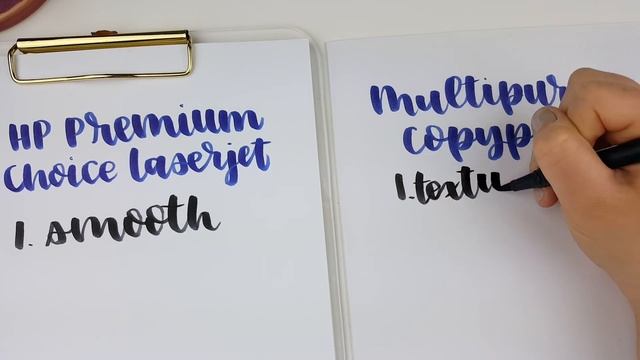 HP Premium
choice laserjet
1. smooth
Multipur
copyp
1. textu